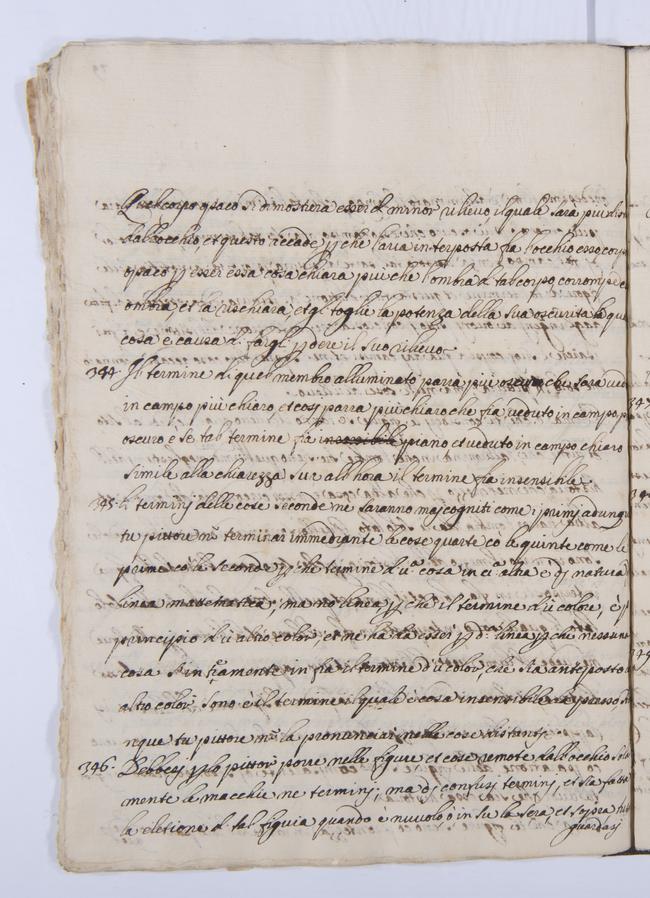 Quel corpo opaco si dimostera esser di minor rilievo il quale sara piu dist
dall'occhio et questo accade p che l'aria interposta fra l'occhio e esso corp
opaco p esser essa cosa chiara piu che l'ombra di tal corpo, corrompe
ombra, et la rischiara, et gli toglie la potenza della sua oscurita la qu
cosa è causa di fargli pdere il suo rilievo
344 Il termine di quel membro alluminato parrà piu oscuro che sara ved
in campo più chiaro, et cosi parra piu chiaro che fia veduto in campo p
oscuro e se tal termine fia piano et veduto in campo chiaro
simile alla chiarezza sua all'hora il termine fia insensibile
345. I terminj delle cose seconde nõ saranno maj cogniti come i primj adunqu
tu pittore nõ terminar immediante le cose quarte cõ le quinte come le
prime cõ la seconde p che termine d'una cosa in un altra è di natura d
linea mattematica, ma nõ linea p che il termine d'ũ colore, è p
principio d'ũ altro color, et nõ ha da esser p ò linea p che nessuna
cosa s'in framette infra il termine d'ũ color, che sia anteposto
altro color, sono è il termine il quale è cosa insensibile d'apresso,
nque tu pittore nõ la pronunciar nelle cose distante
346. Debbesi p lo pittor porre nelle figure et cose remote dall'occhio sola
mente le macchie nõ terminj, ma di confusj terminj, et sia fatta
la eletione di tal figura quando è nuvolo ò in su la sera, et sopra tut
guardasj